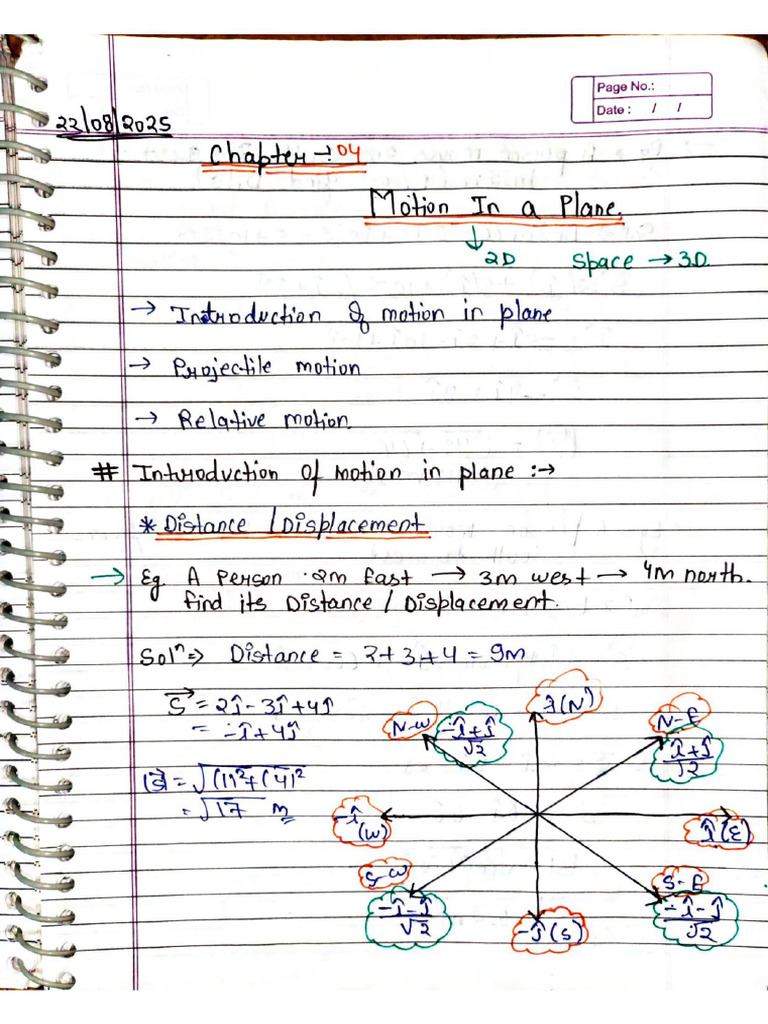 Page No.:
Date : / /
22/08/2025
Chapter → 04
Motion In a Plane.
↓
2D Space → 3D.
→ Introduction of motion in plane
→ Projectile motion
→ Relative motion.
# Introduction Of motion in plane :→
* Distance / Displacement.
→ Eg. A person 2m East → 3m west → 4m north.
find its Distance / Displacement.
Solⁿ ⇒ Distance = 2+3+4 = 9m
S⃗ = 2î - 3î + 4ĵ
= -î + 4ĵ
|S⃗| = √(1)²+(4)²
= √17 m
ĵ(N)
N-W
-î+ĵ/√2
N-E
î+ĵ/√2
-î (W)
î(E)
S-W
-î-ĵ/√2
-ĵ(S)
S-E
-î-ĵ/√2